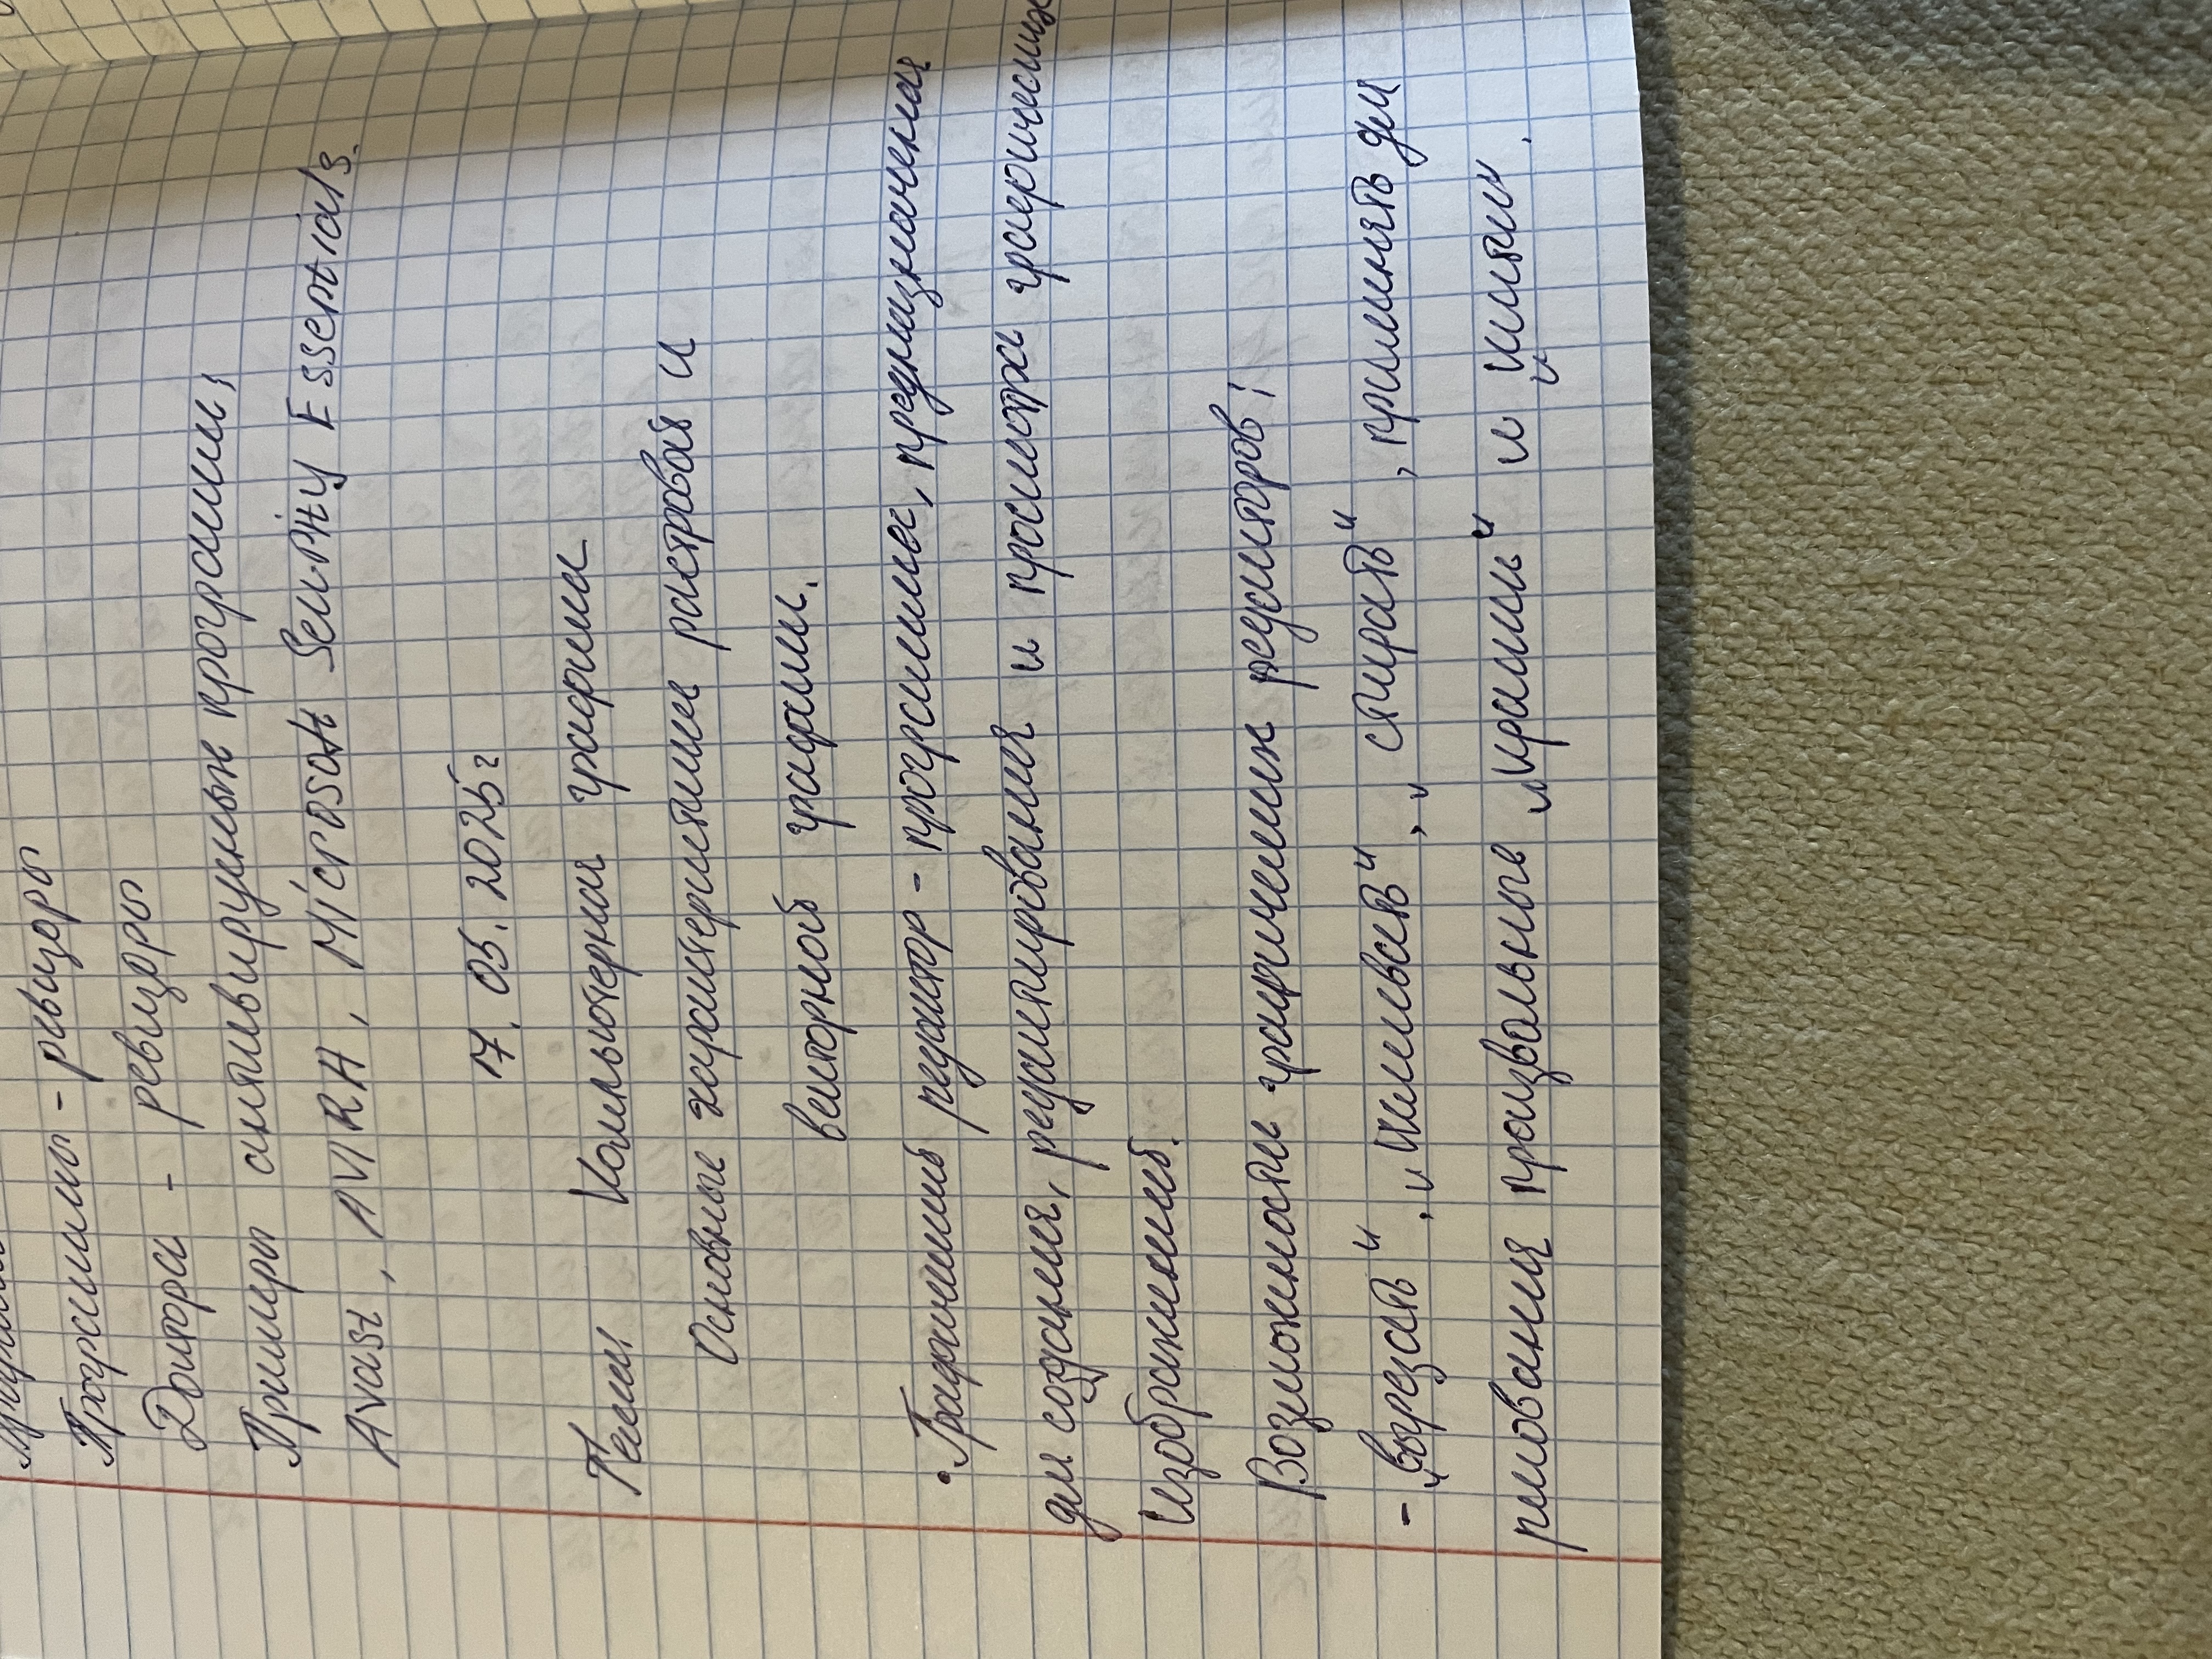 Программы - ревизоры
Доктора - ревизоры
Примеры антивирусных программ:
Avast, AVIRA, Microsoft Security Essentials.
17. 05. 2025г
Тема Компьютерная графика
Основные характеристики растровой и
векторной графики.
• Графический редактор - программа, предназначенная
для создания, редактирования и просмотра графических
изображений.
Возможности графических редакторов:
- „вырезать", „склеивать", „стирать", применять для
рисования произвольные „краски" и „кисти".